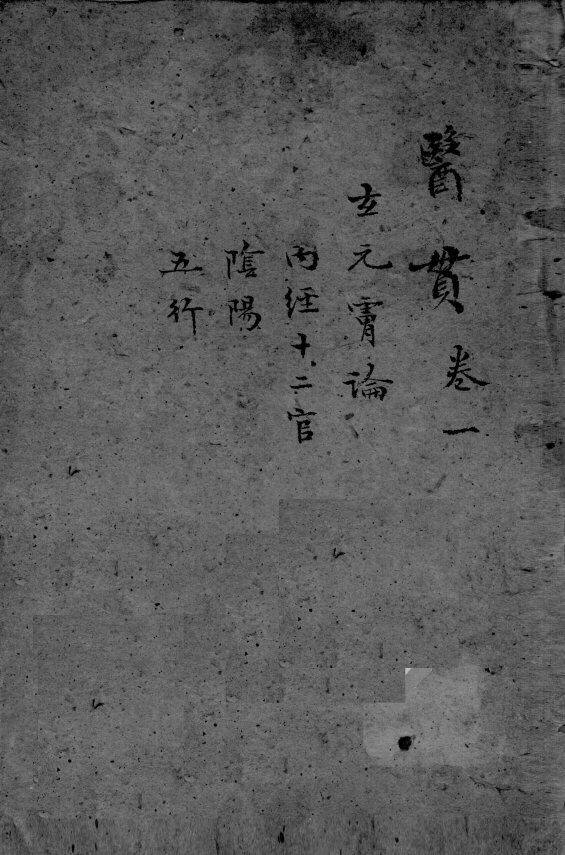 醫貫卷一
玄元膚論
內經十二官
陰陽
五行